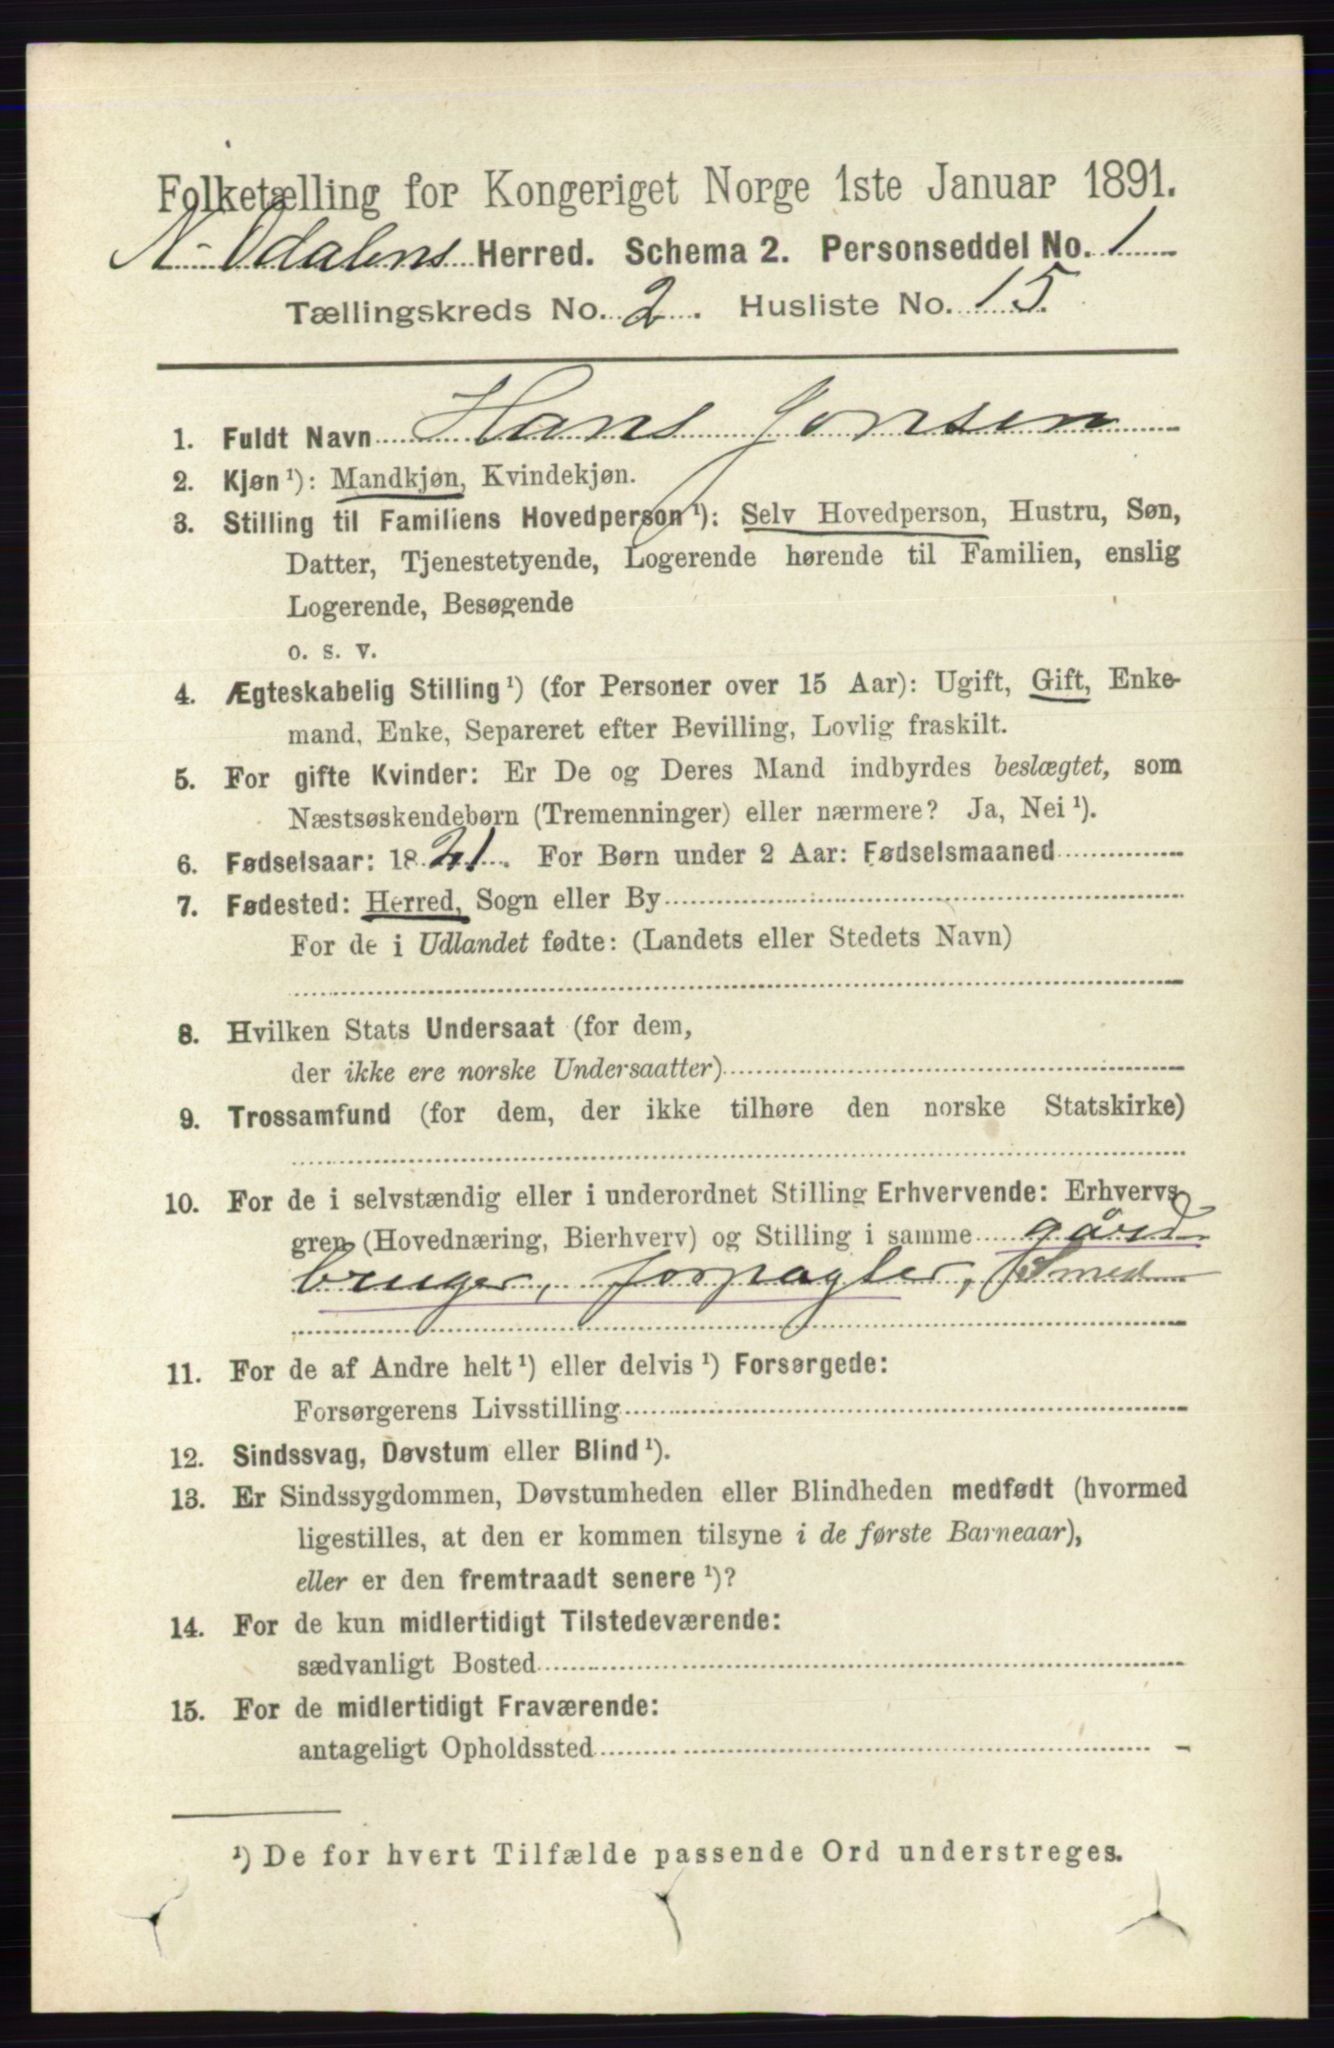 Folketælling for Kongeriget Norge 1ste Januar 1891.
N-Odalens Herred. Schema 2. Personseddel No. 1
Tællingskreds No. 2. Husliste No. 15.
1. Fuldt Navn Hans Jonsen
2. Kjøn ¹): Mandkjøn, Kvindekjøn.
3. Stilling til Familiens Hovedperson ¹): Selv Hovedperson, Hustru, Søn,
Datter, Tjenestetyende, Logerende hørende til Familien, enslig
Logerende, Besøgende
o. s. v.
4. Ægteskabelig Stilling ¹) (for Personer over 15 Aar): Ugift, Gift, Enke-
mand, Enke, Separeret efter Bevilling, Lovlig fraskilt.
5. For gifte Kvinder: Er De og Deres Mand indbyrdes beslægtet, som
Næstsøskendebørn (Tremenninger) eller nærmere? Ja, Nei ¹).
6. Fødselsaar: 1821. For Børn under 2 Aar: Fødselsmaaned
7. Fødested: Herred, Sogn eller By
For de i Udlandet fødte: (Landets eller Stedets Navn)
8. Hvilken Stats Undersaat (for dem,
der ikke ere norske Undersaatter)
9. Trossamfund (for dem, der ikke tilhøre den norske Statskirke)
10. For de i selvstændig eller i underordnet Stilling Erhvervende: Erhvervs-
gren (Hovednæring, Bierhverv) og Stilling i samme gård
bruger, forpagter, Smed
11. For de af Andre helt ¹) eller delvis ¹) Forsørgede:
Forsørgerens Livsstilling
12. Sindssvag, Døvstum eller Blind ¹).
13. Er Sindssygdommen, Døvstumheden eller Blindheden medfødt (hvormed
ligestilles, at den er kommen tilsyne i de første Barneaar),
eller er den fremtraadt senere ¹)?
14. For de kun midlertidigt Tilstedeværende:
sædvanligt Bosted
15. For de midlertidigt Fraværende:
antageligt Opholdssted
¹) De for hvert Tilfælde passende Ord understreges.